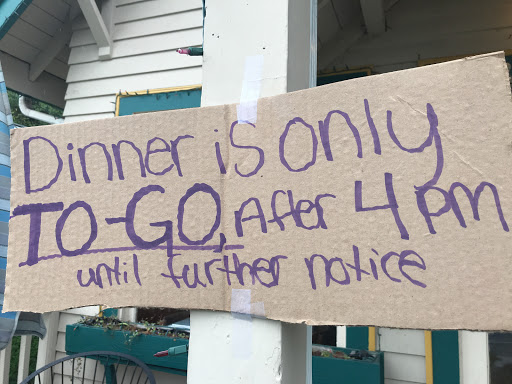 Dinner is only
TO-GO, After 4 pm
until further notice